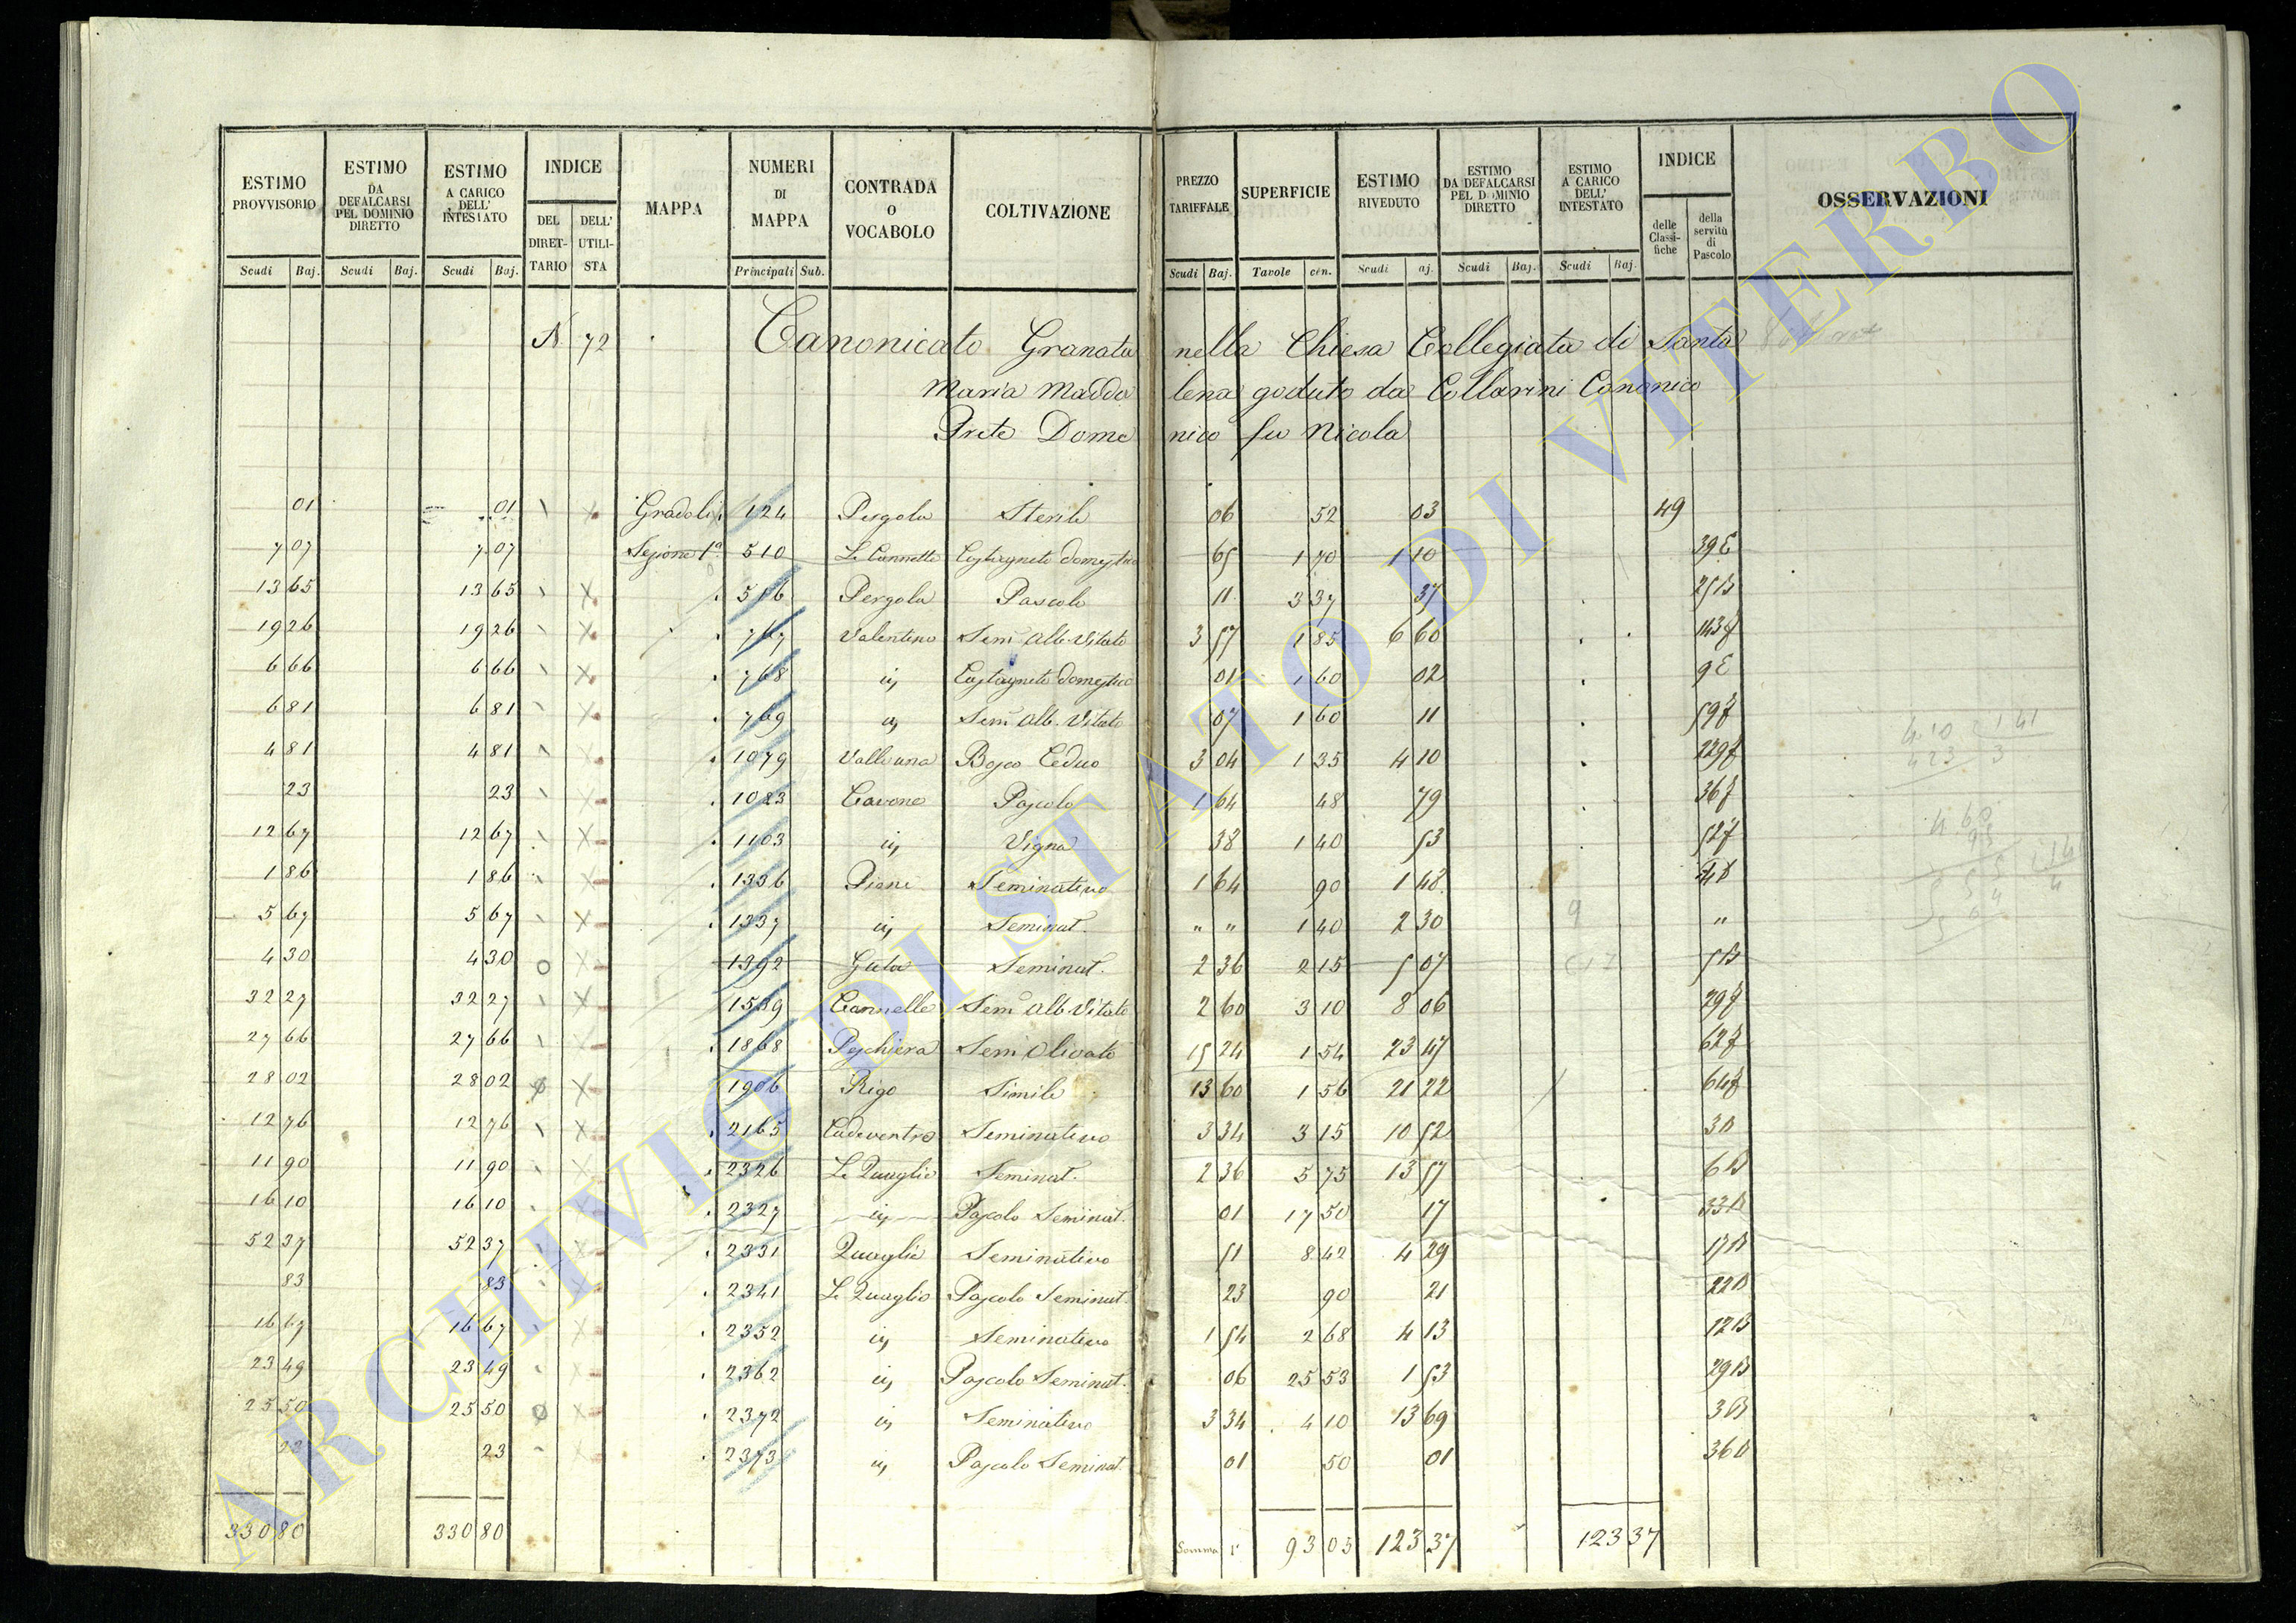 ESTIMO PROVVISORIO | ESTIMO DA DEFALCARSI PEL DOMINIO DIRETTO | ESTIMO A CARICO DELL' INTESTATO | INDICE | MAPPA | NUMERI DI MAPPA | CONTRADA O VOCABOLO | COLTIVAZIONE | PREZZO TARIFFALE | SUPERFICIE | ESTIMO RIVEDUTO | ESTIMO DA DEFALCARSI PEL DOMINIO DIRETTO | ESTIMO A CARICO DELL' INTESTATO | INDICE | OSSERVAZIONI
DEL DIRETTARIO | DELL' UTILISTA | delle Classifiche | della servitù di Pascolo
Scudi | Baj. | Scudi | Baj. | Scudi | Baj. | Principali | Sub. | Scudi | Baj. | Tavole | cen. | Scudi | aj. | Scudi | Baj. | Scudi | Baj.
N 72 Canonicato Granata nella Chiesa Collegiata di Santa
Maria Maddalena goduto da Collarini Canonico
Prete Domenico fu Nicola
01 | 01 | Gradoli | 124 | Pergola | Sterile | 06 | 52 | 03 | 49
7 07 | 7 07 | Sezione 1ª | 510 | Le Cannelle | Castagneto domestico | 65 | 1 70 | 1 10 | 39 E
13 65 | 13 65 | 516 | Pergola | Pascolo | 11 | 3 37 | 37 | 25 B
19 26 | 19 26 | 767 | Valentino | Sem Alb. Vitato | 3 57 | 1 85 | 6 60 | 143 f
6 66 | 6 66 | 768 | ivi | Castagneto domestico | 01 | 1 60 | 02 | 9 E
6 81 | 6 81 | 769 | ivi | Sem Alb. Vitato | 07 | 1 60 | 11 | 59 f
4 81 | 4 81 | 1079 | Bosco Ceduo | 3 04 | 1 35 | 4 10 | 229 f
23 | 23 | 1083 | Cavone | Pascolo | 1 64 | 48 | 79 | 36 f
12 67 | 12 67 | 1103 | ivi | Vigna | 38 | 1 40 | 53 | 52 f
1 86 | 1 86 | 1336 | Piane | Seminativo | 1 64 | 90 | 1 48
5 67 | 5 67 | 1337 | ivi | Seminat. | " " | 1 40 | 2 30 | "
4 30 | 4 30 | 1392 | Seminat. | 2 36 | 2 15 | 5 07 | 5 B
32 27 | 32 27 | 1589 | Cannelle | Sem Alb. Vitato | 2 60 | 3 10 | 8 06 | 29 f
27 66 | 27 66 | 1868 | Peschiera | Sem Olivato | 15 24 | 1 54 | 23 47 | 62 f
28 02 | 28 02 | 1906 | Rigo | Simile | 13 60 | 1 56 | 21 22 | 64 f
12 76 | 12 76 | 2165 | Cadeventro | Seminativo | 3 34 | 3 15 | 10 52 | 3 B
11 90 | 11 90 | 2326 | Le Quaglie | Seminat. | 2 36 | 5 75 | 13 57 | 6 B
16 10 | 16 10 | 2327 | ivi | Pascolo Seminat. | 01 | 17 50 | 17 | 33 B
52 37 | 52 37 | 2331 | Quaglie | Seminativo | 51 | 8 42 | 4 29 | 17 B
83 | 83 | 2341 | Le Quaglie | Pascolo Seminat. | 23 | 90 | 21 | 22 B
16 67 | 16 67 | 2352 | ivi | Seminativo | 1 54 | 2 68 | 4 13 | 12 B
23 49 | 23 49 | 2362 | ivi | Pascolo Seminat. | 06 | 25 53 | 1 53 | 29 B
25 50 | 25 50 | 2372 | ivi | Seminativo | 3 34 | 4 10 | 13 69 | 3 B
23 | 23 | 2373 | ivi | Pascolo Seminat. | 01 | 50 | 01 | 36 B
330 80 | 330 80 | Somma | 93 05 | 123 37 | 123 37
ARCHIVIO DI STATO DI VITERBO